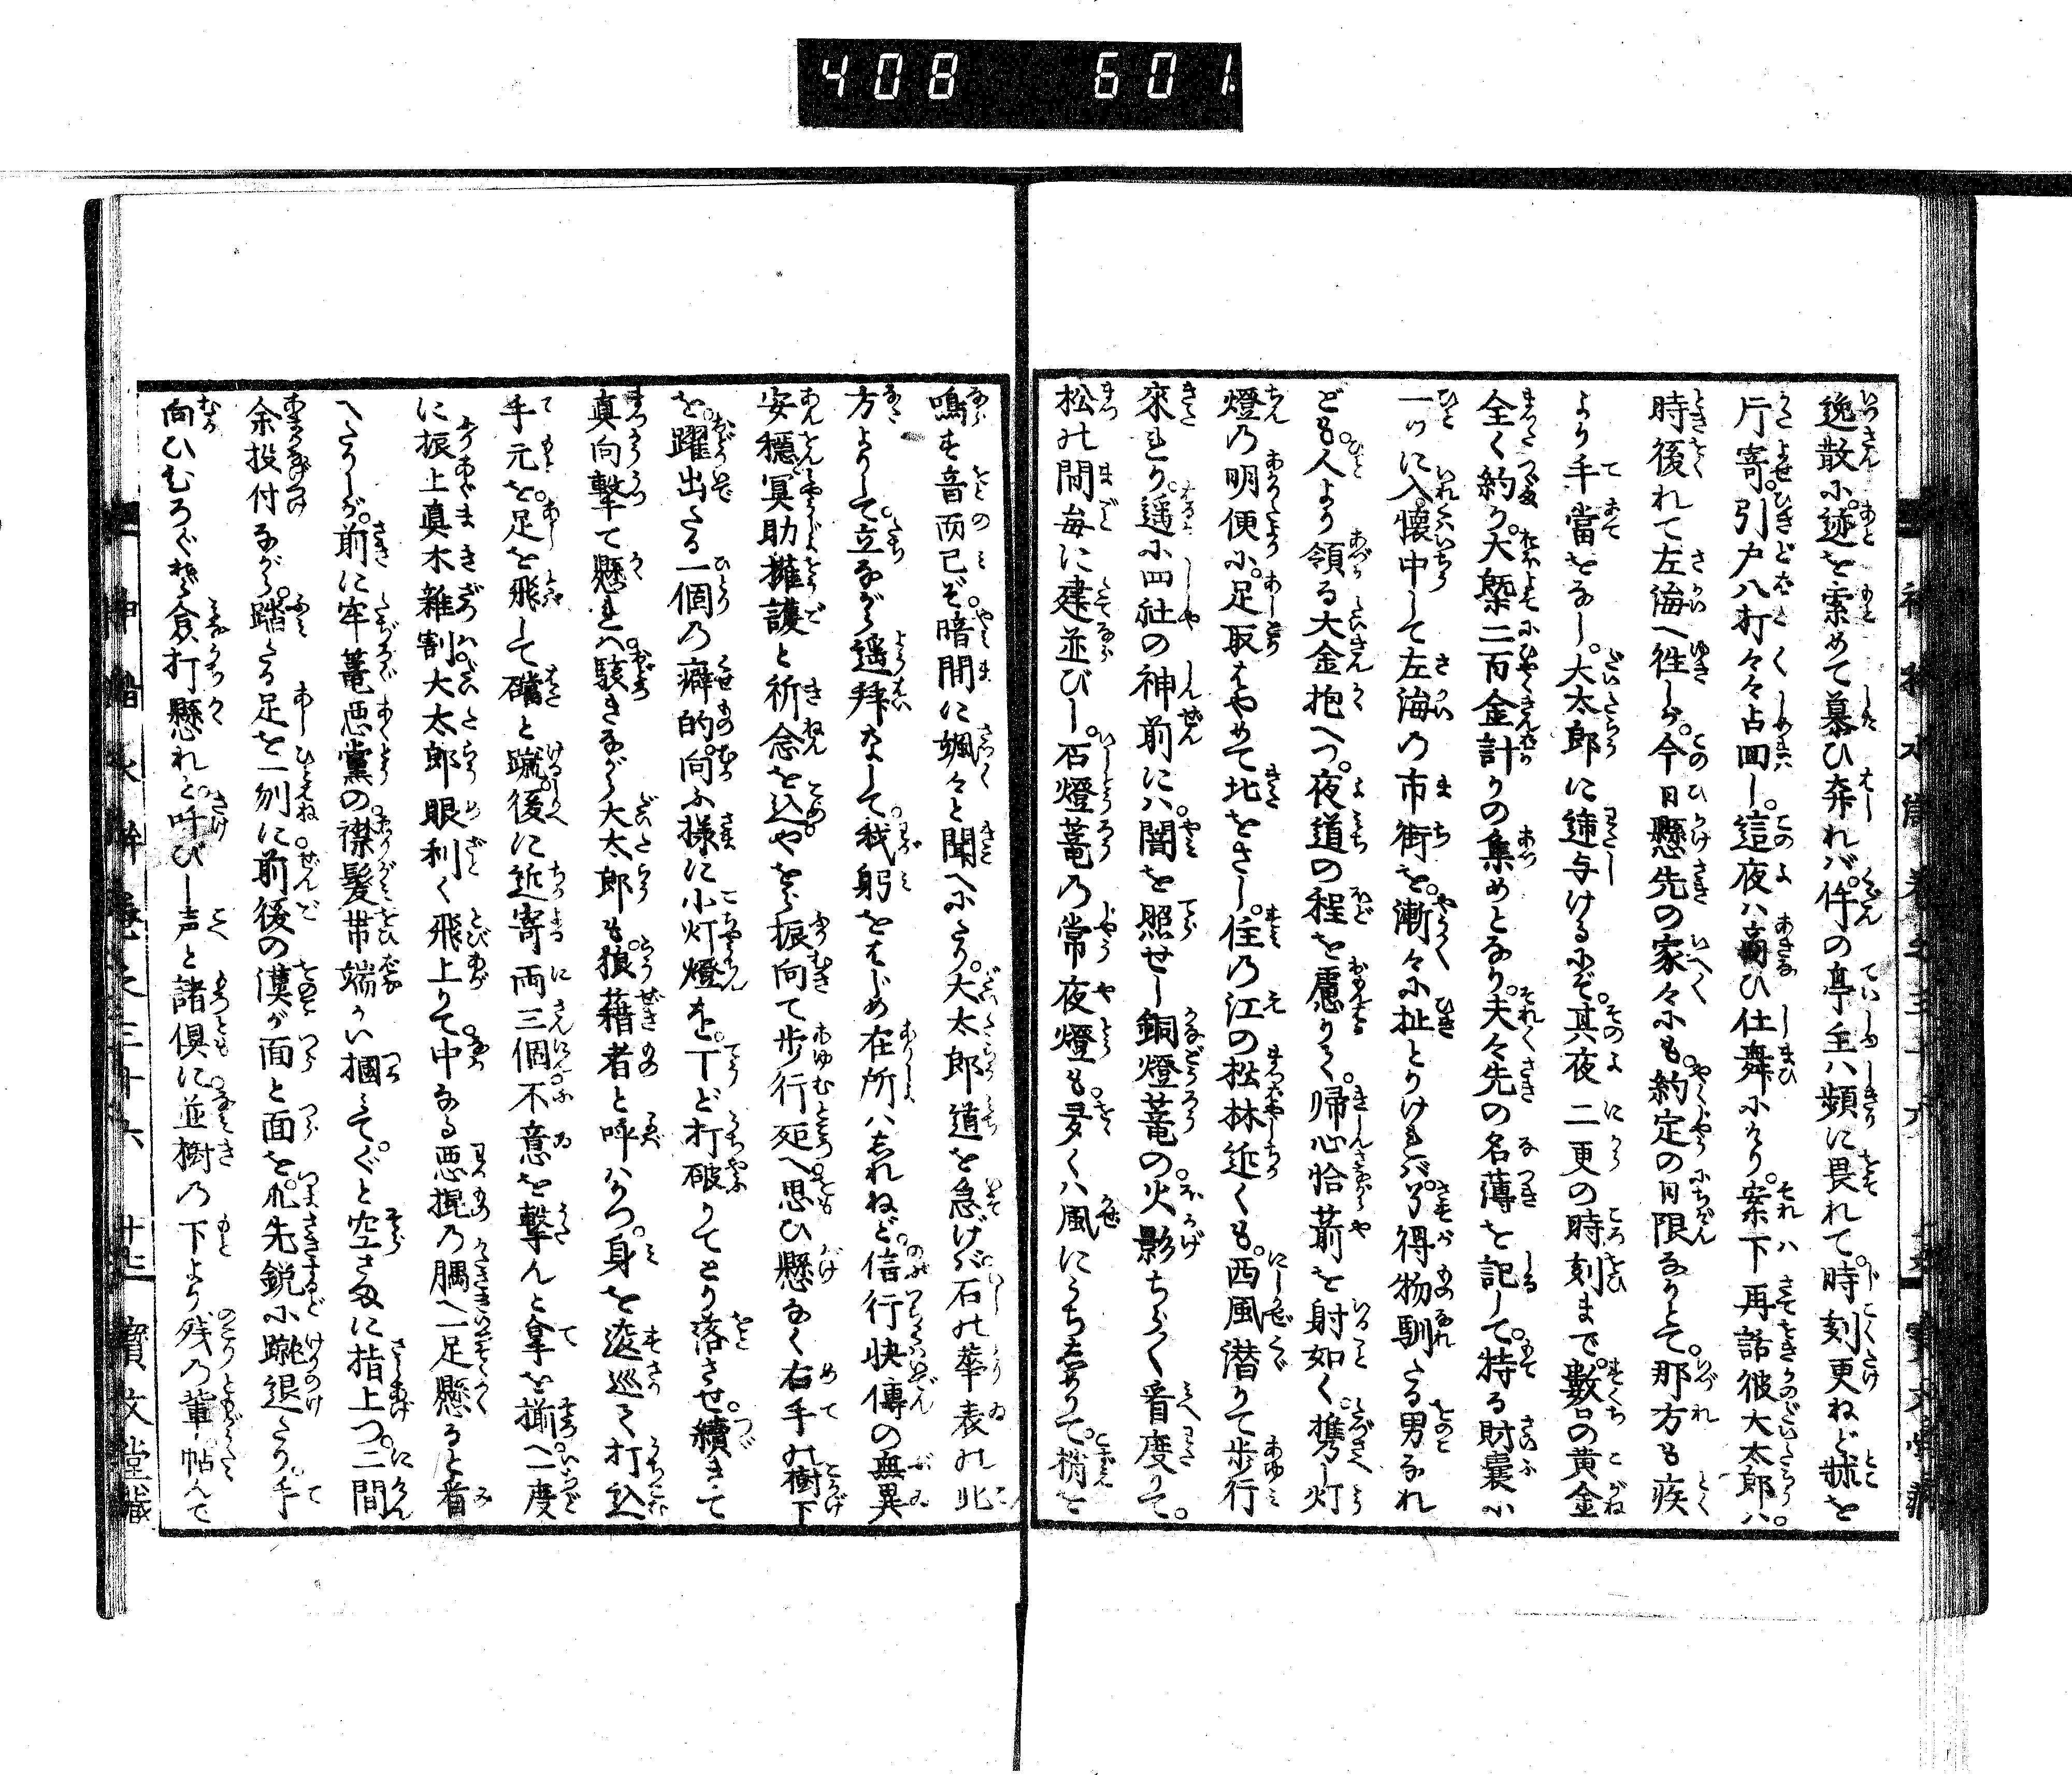 408 601
逸散に。迹を索めて慕ひ奔れバ。件の亭主ハ頻に畏れて。時刻更ねど牀を
片寄。引戸ハ打々占回し。這夜ハ商ひ仕舞にけり。案下再話彼大太郎ハ。
時後れて左海へ徃しが。今日懸先の家々にも。約定の日限なりとて。那方も疾
より手當をなし。大太郎に逓与けるにぞ。其夜二更の時刻まで。数口の黄金
全く約り。大槩二百金計りの集めとなり。夫々先の名薄を記して。持る財嚢に
一ツに入。懐中して左海の市街を。漸々に扯とりけれバ。得物馴たる男なれ
ども。人より領る大金抱へつ。夜道の程を慮りく。帰心恰箭を射如く。携し灯
燈の明便に。足取はやめて北をさし。住の江の松林近くも。西風潜りて歩行
來れり。遥に四社の神前にハ。闇を照せし銅燈菴の。火影ちらく音度りて。
松の間毎に建並びし。石燈菴の常夜燈も。多くハ風にうち消りて。梢を
鳴す音而已ぞ。暗間に颯々と聞へにたり。大太郎道を急げバ石の華表の此
方よりして立ながら遥拜なして。我躬をはじめ在所ハしれねど。信行快傳の無異
安穏冥助擁護と祈念を込。やをら振向て歩行死へ思ひ懸なく右手の樹下
を。躍出たる一個の癖的。向ふ様に小灯燈を。丁ど打破りてとり落させ。續きて
真向撃て懸れバ。駭きながら大太郎も。狼藉者と呼ハりつ。身を逡巡て打込
手元を。足を飛して礑と蹴。後に近寄両三個不意を撃んと拿を揃へ一度
に振上真木雑割。大太郎眼利く飛上りて。中なる悪棍の腮へ一足懸ると看
へたりしが。前に牢篭悪黨の。襟髪帯端かい掴みて。ぐと空さまに指上つ。二間
余投付ながら。踏たる足を一刎に。前後の漢が面と面を。爪先鋭に蹴退たり。手
向ひむろぐ�ら倉打懸れと。呼びし声と諸倶に。並樹の下より残の輩帖んで
十七 寶文堂藏